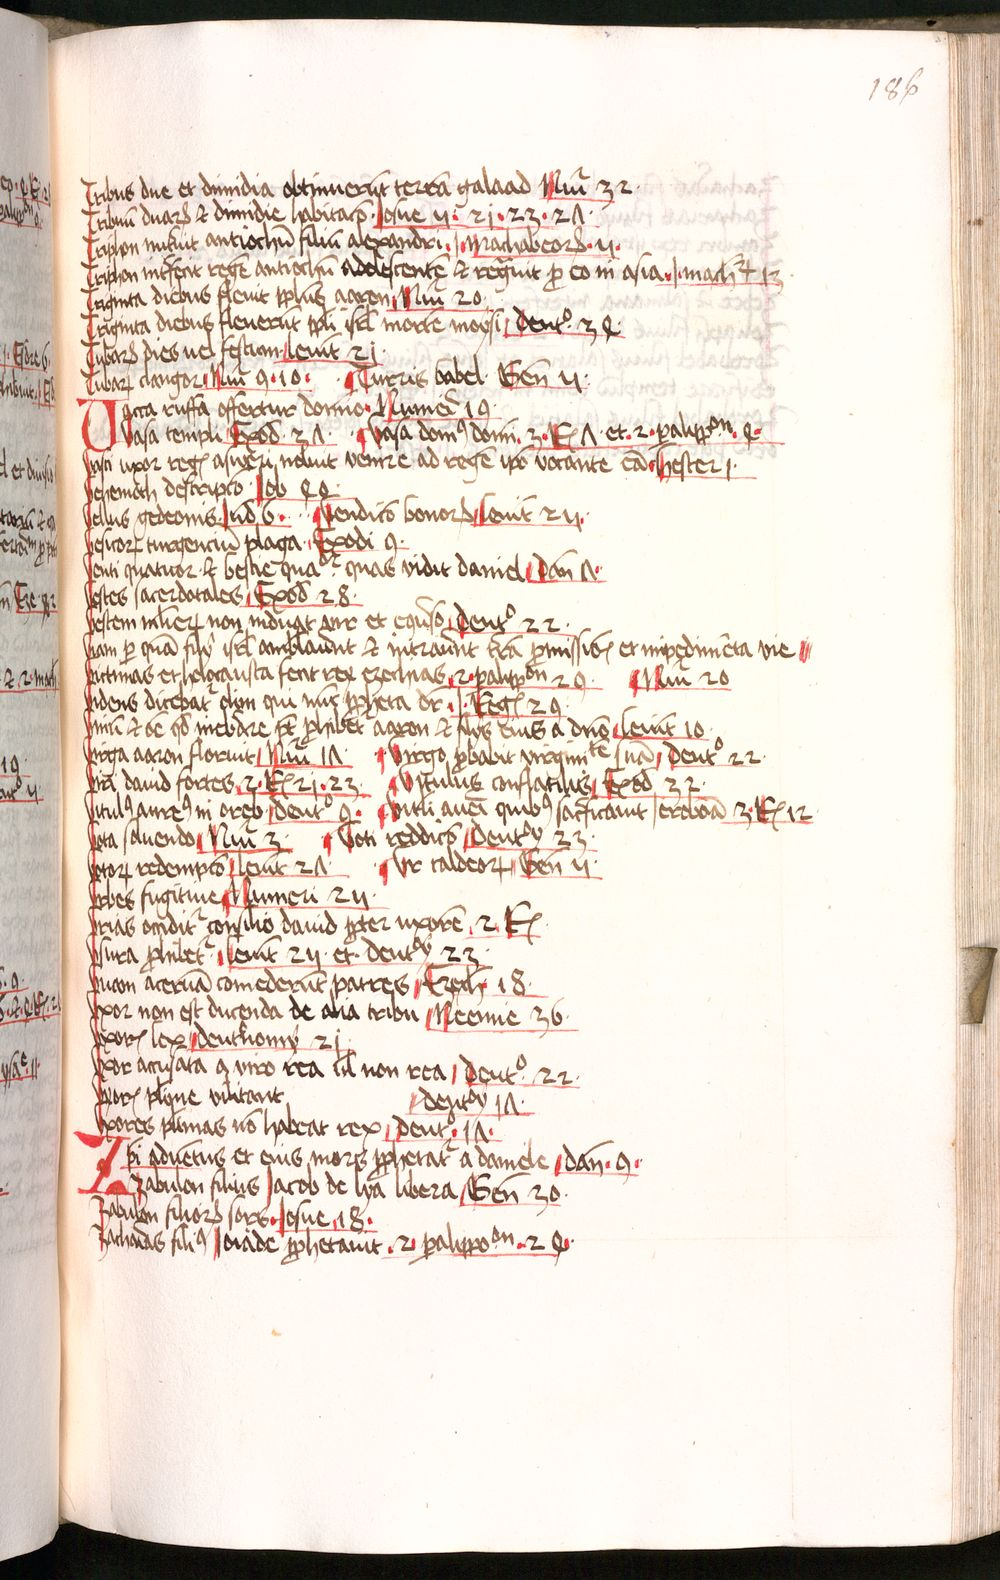 186
Tribus due et dimidia obtinuerūt terrā galaad Nūi 32
Tribuū duarꝝ & dimidie habitacō. Josue 11. 21. 22. 27
Triphon nutrivit antiochū filiū alexandri. 1. Machabeorꝝ. 11.
Triphon interfecit regē antiochū adolescentē & regnavit ꝓ eo in asia. 1 mach 13
Triginta diebus flevit pplus aaron Nūi 20
Triginta diebus fleverūt ppli isrl mortē moysi deutº. 34
Tubarꝝ dies vel festum levit 23
Tubarꝝ clangor Nūi 9. 10. Turris babel Gen 11.
Vacca ruffa offertur domino. Numeri 19
Vasa templi Exod 37 Vasa domꝰ domi. 3. Rꝭ 7 et. 2. palippoⁿ. 4.
vasti uxor regꝭ asweri noluit venire ad regē ipo vocante eā. hester 1.
vehemoth descripcō Job 40
vellus gedeonis. Jud 6. Vendicō bonorꝝ levit 25.
vesicarꝝ turgenciū plaga. Exodi 9.
venti quatuor & bestie quatuor quas vidit daniel Dan 7.
vestes sacerdotales Exod 28.
vestem mulierꝝ non induat vir et ecōverso deutº 22.
viam ꝑ quā filii isrl ambulaverūt & intraverūt terrā promissiōis et impedimēta vie
victimas et holocausta fecit rex ezechias 2. palippoⁿ 29. Nūi 20
videns dicebatur olim qui nunc propheta dr. 1. Regꝭ 9.
vinū & oē qd inebriare pt prohibetur aaron & filiis eius a dno levit 10.
virga aaron floruit Nūi 17 Virgo probabit virginitatē suā deutº 22
viri david fortes 2. Rꝭ 21. 23. Vitulus conflatilis Exod 32
vitulꝰ aureꝰ in oreb deutº 9. Vituli aurei quibꝰ sacrificavit Jeroboā 3. Rꝭ 12
vota savendo Nūi 3 Voti reddicō deutº 23
votorꝝ redempcō levit 27 Vr caldeorꝝ Gen 11
urbes fugitive Numeri 35
urias occiditur consilio david propter uxorē 2. Rꝭ
usura prohibetur levit 25 et. deutº 23
uvam acerbā comederūt patres Ezech 18.
uxor non est ducenda de alia tribu Neemie 36.
uxorꝭ lex deuthomii 21
uxor accusata a viro rea vel non rea deutº. 22.
deutº 17
uxores plurimas nō habeat rex deutº. 17.
Xpi adventus et eius mors prophetatur a daniele dan. 9.
Zabulon filius Jacob de lya libera Gen 30.
Zabulon filiorꝝ sors. Josue 18.
Zacharias filiꝰ Joiade prophetavit. 2. palippoⁿ. 24